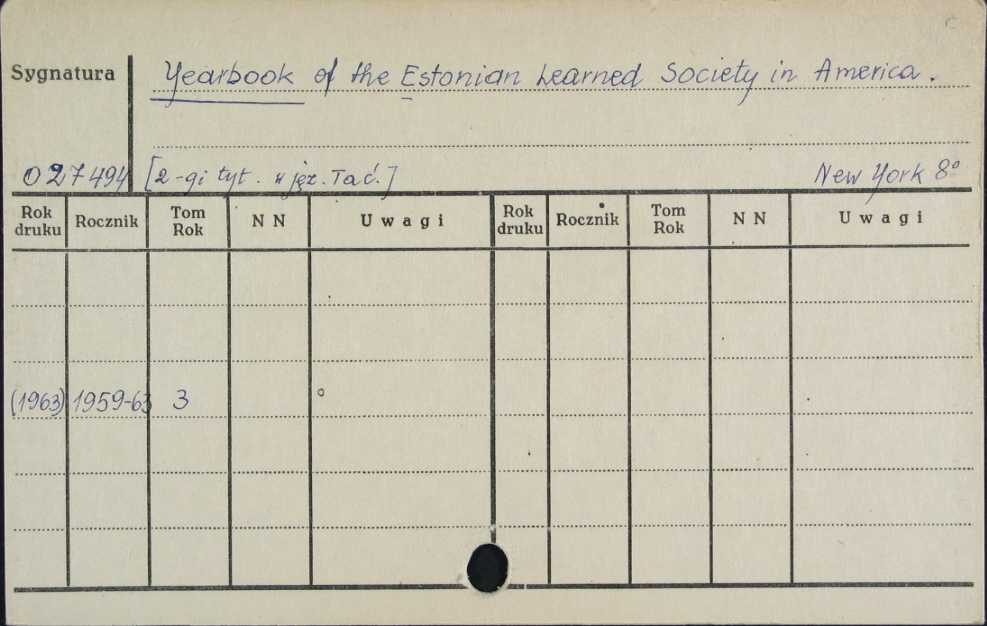 Sygnatura
Yearbook of the Estonian Learned Society in America.
027494 [2-gi tyt. w jęz. Łać.] New York 8°
Rok druku Rocznik Tom Rok N N Uwagi Rok druku Rocznik Tom Rok N N Uwagi
(1963) 1959-63 3